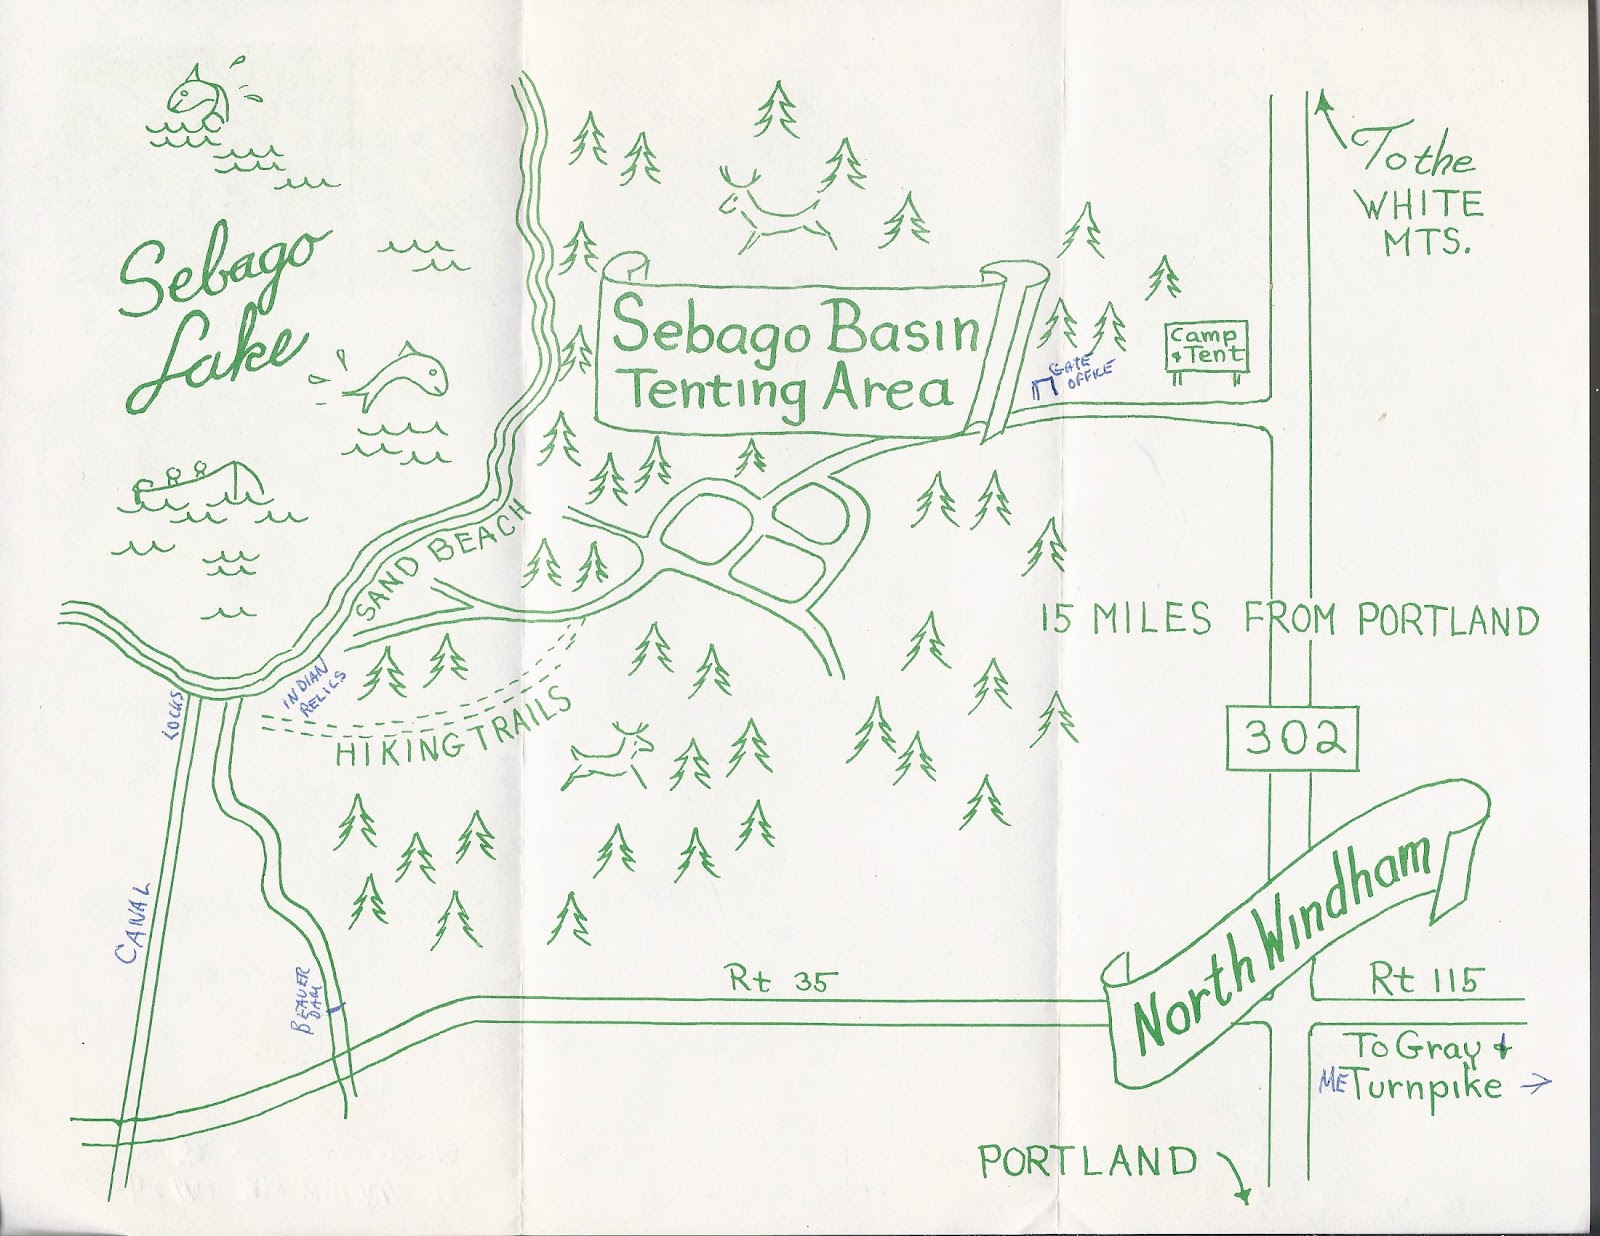 To the
WHITE
MTS.
Sebago
Lake
Sebago Basin
Tenting Area
Camp
& Tent
GATE
OFFICE
SAND BEACH
15 MILES FROM PORTLAND
INDIAN
RELICS
LOCKS
HIKING TRAILS
302
CANAL
North Windham
BEAVER
DAM
Rt 35
Rt 115
To Gray &
ME Turnpike →
PORTLAND